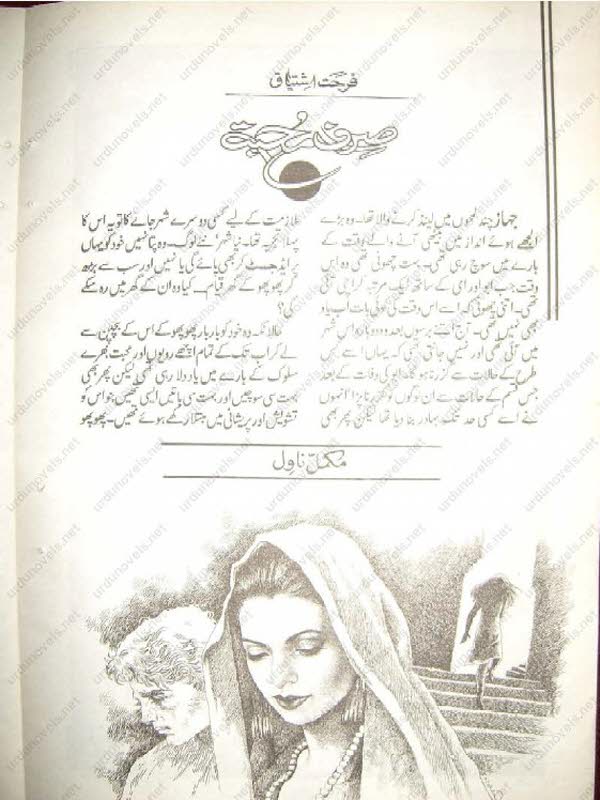 فرحت اشتیاق
صرف محبت
جہاز چند لمحوں میں لینڈ کرنے والا تھا۔ وہ بڑے
الجھے ہوئے انداز میں بیٹھی آنے والے وقت کے
بارے میں سوچ رہی تھی۔ بہت چھوٹی تھی وہ اس
وقت جب ابو اور امی کے ساتھ ایک مرتبہ کراچی آئی
تھی۔ اتنی چھوٹی کہ اسے اس وقت کی کوئی بات اب یاد
بھی نہیں تھی۔ آج اتنے برسوں بعد وہ دوبارہ اس شہر
میں آئی تھی اور نہیں جانتی تھی کہ یہاں اسے کس
طرح کے حالات سے گزرنا ہو گا۔ ابو کی وفات کے بعد
جس قسم کے حالات سے ان لوگوں کو گزرنا پڑا انہوں
نے اسے کسی حد تک بہادر بنا دیا تھا لیکن پھر بھی
ملازمت کے لیے کسی دوسرے شہر جانے کا تو یہ اس کا
پہلا تجربہ تھا۔ نیا شہر نئے لوگ۔ وہ پتا نہیں خود کو یہاں
پر ایڈجسٹ کر بھی پائے گی یا نہیں اور سب سے بڑھ
کر پھوپھو کے گھر قیام۔ کیا وہ ان کے گھر میں رہ سکے
گی؟
حالانکہ وہ خود کو بار بار پھوپھو کے اس کے بچپن سے
لے کر اب تک کے تمام اچھے رویوں اور محبت بھرے
سلوک کے بارے میں یاد دلا رہی تھی لیکن پھر بھی
بہت سی سوچیں اور بہت سی باتیں ایسی تھیں جو اس کو
تشویش اور پریشانی میں مبتلا کرتے ہوئے تھیں۔ پھوپھو
مکمل ناول
urdunovels.net